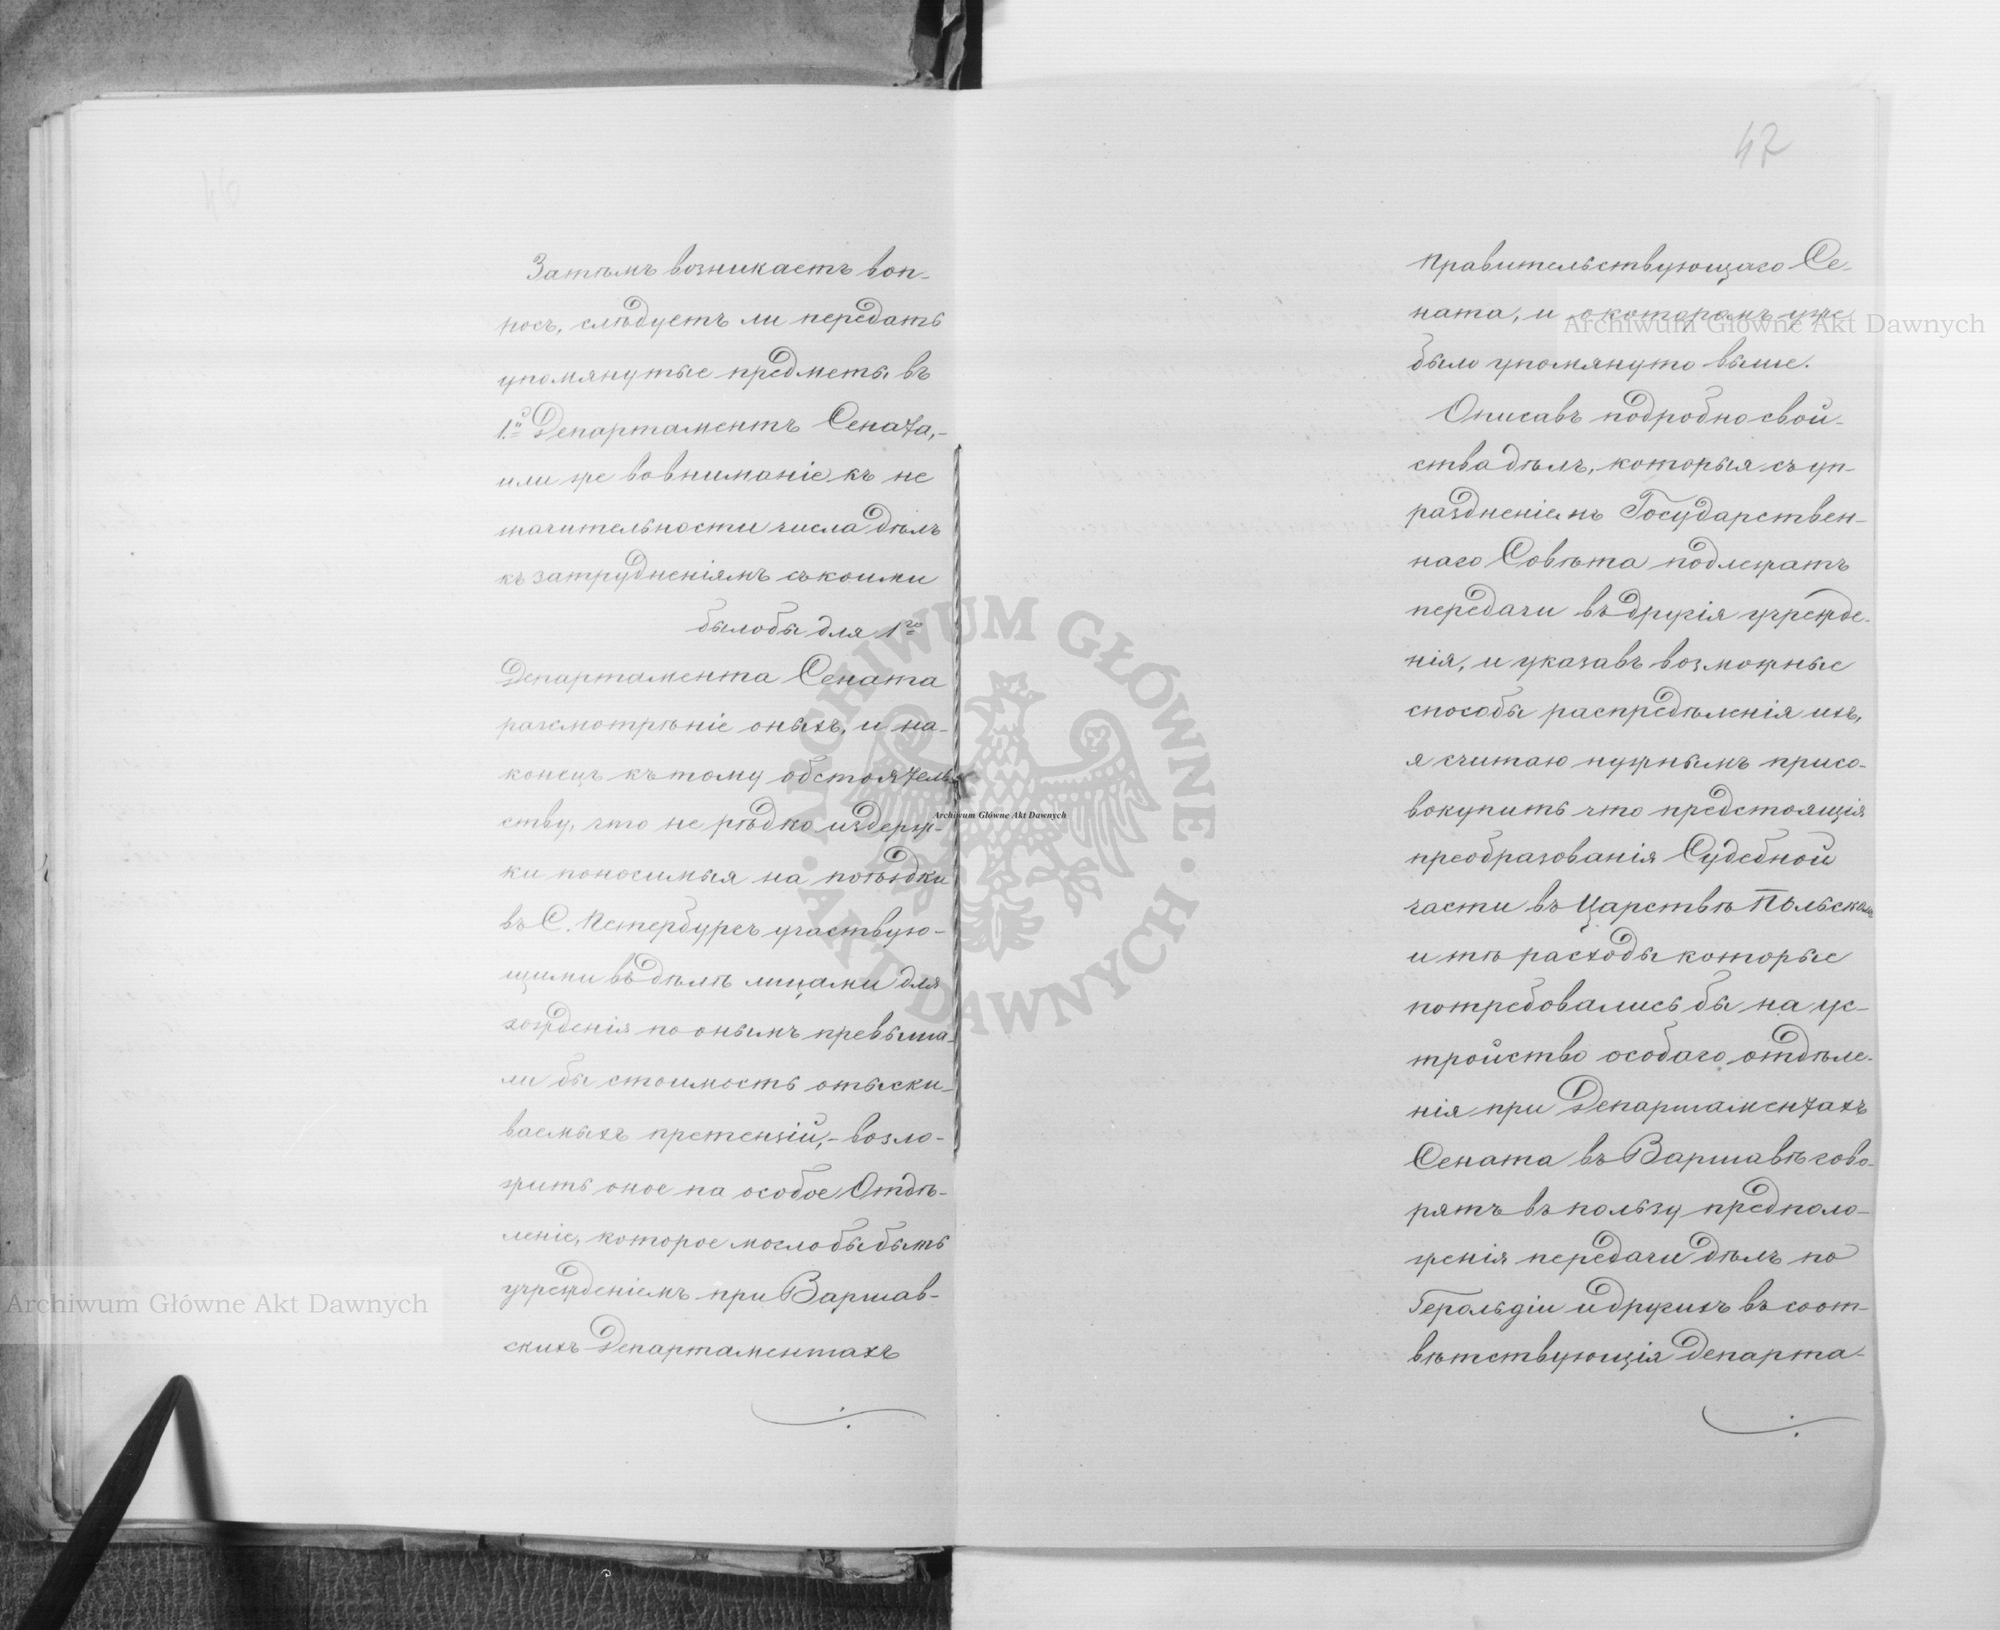 Затѣмъ возникаетъ воп-
росъ, слѣдуетъ ли передать
упомянутые предметы въ
1.й Департаментъ Сената,-
или же во вниманіе къ не
значительности числа дѣлъ
къ затрудненіямъ съ коими
было бы для 1го
Департамента Сената
разсмотрѣніе оныхъ, и на-
конецъ къ тому обстоятель-
ству, что не рѣдко издерж-
ки поносимыя на поѣздки
въ С. Петербургъ участвую-
щими въ дѣлѣ лицами для
хожденія по онымъ превыша-
ли бы стоимость отыски-
ваемыхъ претензій,- возло-
жить оное на особое Отдѣ-
леніе, которое могло бы быть
учрежденіемъ при Варшав-
скихъ Департаментахъ
47
Правительствующаго Се-
ната, и о которомъ уже
было упомянуто выше.
Описавъ подробно свой-
ства дѣлъ, которыя съ уп-
раздненіемъ Государствен-
наго Совѣта подлежатъ
передачи въ другія учрежде-
нія, и указавъ возможные
способы распредѣленія ихъ,
я считаю нужнымъ присо-
вокупить что предстоящія
преобразованія Судебной
части въ Царствѣ Польскомъ
и тѣ расходы которые
потребовались бы на ус-
тройство особаго отдѣле-
нія при Департаментахъ
Сената въ Варшавѣ гово-
рятъ въ пользу предполо-
женія передачи дѣлъ по
Герольдіи и другихъ въ соот-
вѣтствующія Департа-
Archiwum Główne Akt Dawnych
Archiwum Główne Akt Dawnych
Archiwum Główne Akt Dawnych
ARCHIWUM GŁÓWNE · AKT DAWNYCH ·